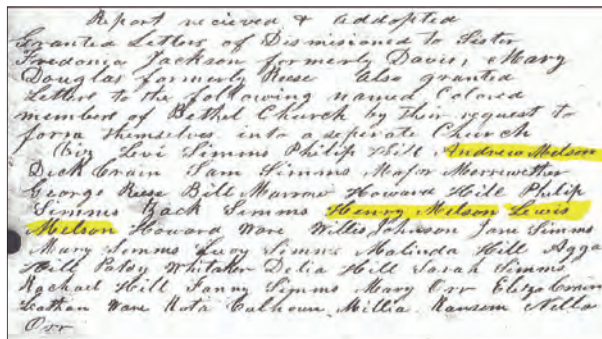 Report recieved & addopted
Granted Letters of Dismisioned to Sister
Fredonia Jackson formerly Davis, Mary
Douglas formerly Reese Also granted
Letters to the following named Colored
members of Bethel Church by their request to
form themselves into a seperate Church
Viz Levi Simms Philip Hill Andrew Melson
Dick Crain Sam Simms Major Merriwether
George Reese Bill Marrow Howard Hill Philip
Simms Zack Simms Henry Melson Lewis
Melson Howard Ware Willis Johnson Jane Simms
Mary Simms Lucy Simms Malinda Hill Agga
Hill Patsy Whitaker Delia Hill Sarah Simms
Rachael Hill Fanny Simms Mary Orr Eliza Crain
Leathan Ware Kota Calhoun Millia Ransom Nella
Orr